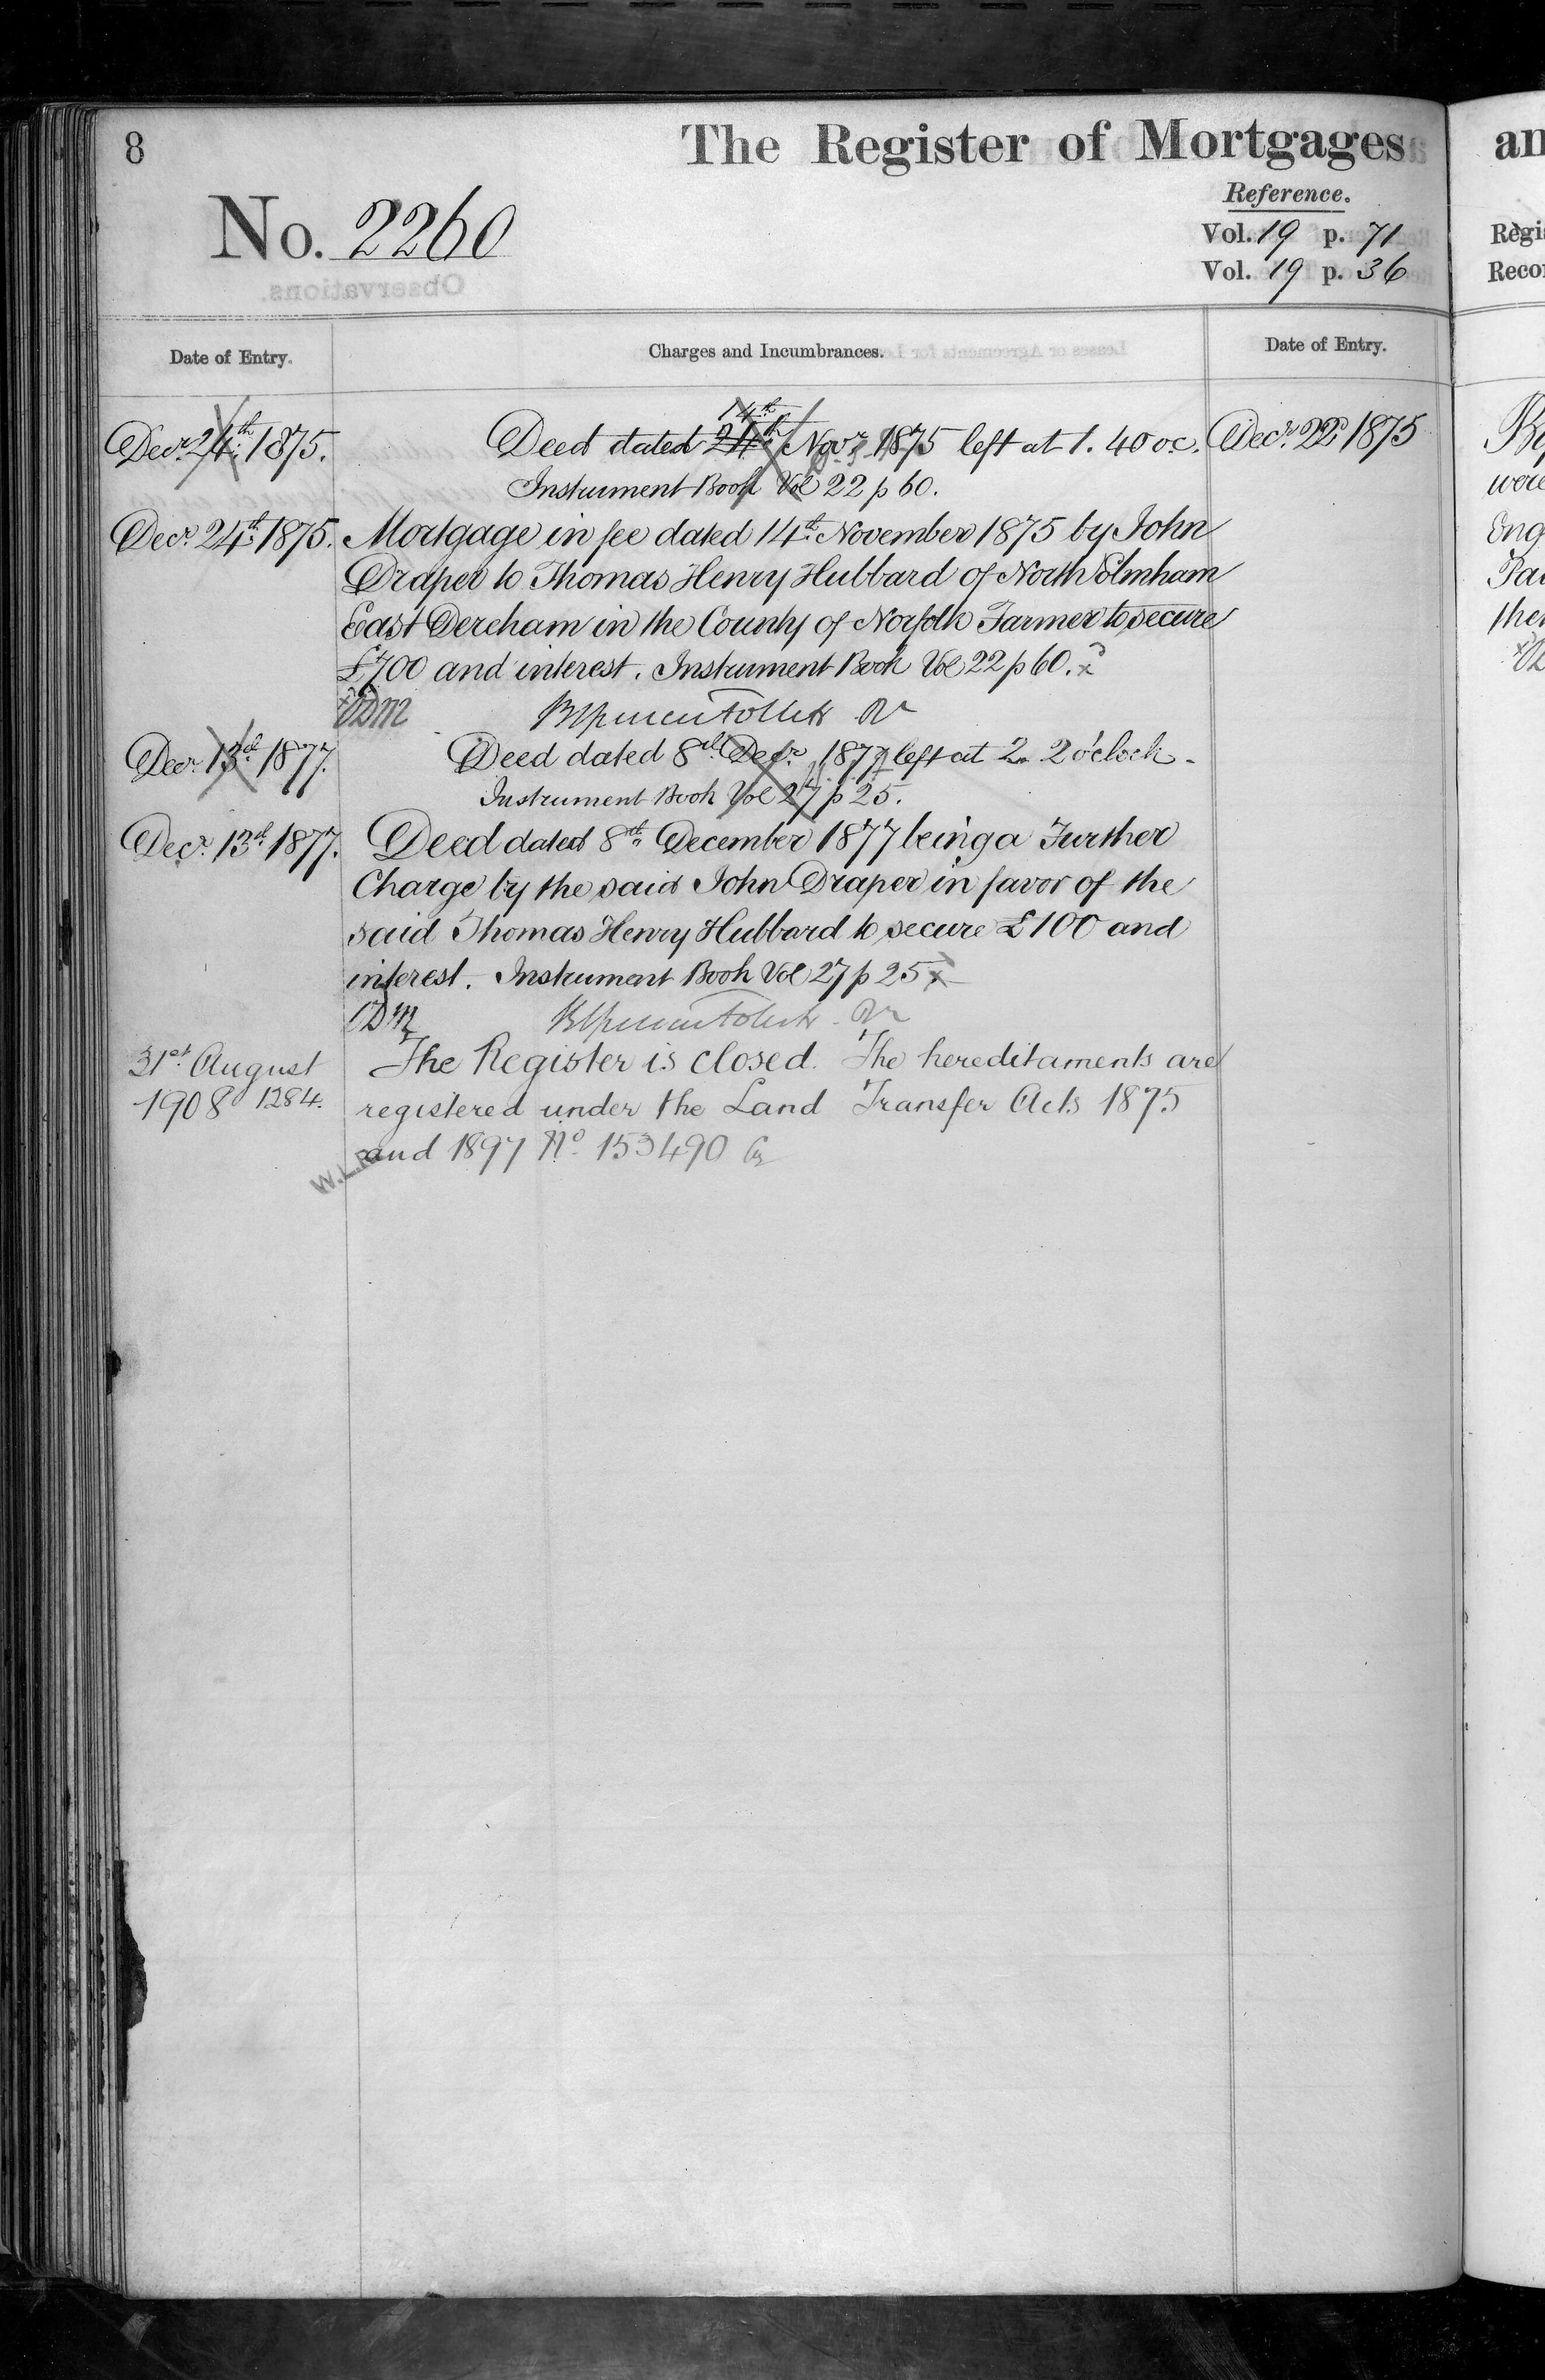 8
The Register of Mortgages
an
Reference.
No. 2260
Vol. 19 p. 71
Vol. 19 p. 36
Regis
Recor
Observations.
Date of Entry.
Charges and Incumbrances.
Date of Entry.
14th
Decr. 24th 1875. Deed dated 24th Novr. 1875 left at 1.40 oc. Decr. 22d 1875
Instrument Book Vol 22 p 60.
were
Decr. 24th 1875. Mortgage in fee dated 14th November 1875 by John
Eng
Draper to Thomas Henry Hubbard of North Elmham
East Dereham in the County of Norfolk Farmer to secure
£700 and interest. Instrument Book Vol 22 p 60. x
Decr. 13d 1877. Deed dated 8th Decr. 1877 left at 2. 2 o'clock.
Instrument Book Vol 27 p 25.
Decr. 13d 1877. Deed dated 8th December 1877 being a Further
Charge by the said John Draper in favor of the
said Thomas Henry Hubbard to secure £100 and
interest. Instrument Book Vol 27 p 25 x
31st August The Register is closed. The hereditaments are
1908 1284. registered under the Land Transfer Acts 1875
and 1897 No. 153490
W.L.R.